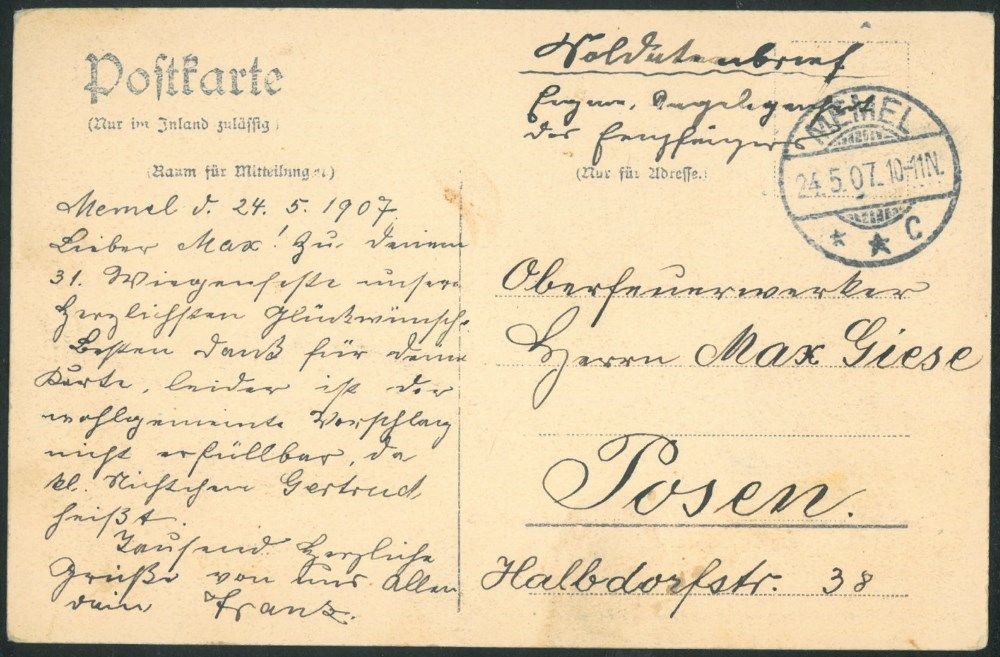 Postkarte
(Nur im Inland zulässig)
(Raum für Mitteilungen)
Memel d. 24. 5. 1907
Lieber Max! Zu deinem
31. Wiegenfeste unsere
herzlichsten Glückwünsche.
Besten Dank für deine
Karte, leider ist der
wohlgemeinte Vorschlag
nicht erfüllbar, da
kl. Nichtchen Gertrud
heißt.
Tausend herzliche
Grüße von uns Allen
dein Franz.
Soldatenbrief
Eigene Angelegenheit
des Empfängers
(Nur für Adresse.)
MEMEL
24.5.07.10-11N.
* * C
Oberfeuerwerker
Herrn Max Giese
Posen.
Halbdorfstr. 38